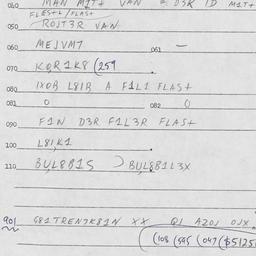 040 MAN M1T+ VAN D3R 1D M1T+
FLES+L/FLAS+
050 ROJT3R VAN
060 MEJVM7 061 —
070 KQR1K8 (259
080 1XOB L81B A F1L1 FLAS+
081 0 082 0
090 F1N D3R F1L3R FLAS+
100 L81K1
110 BUL8B1S ) BUL8B1L3X
901 G81TREN7K81N XX Q1 AZOJ OJX
(108 (595 (047 ($5125